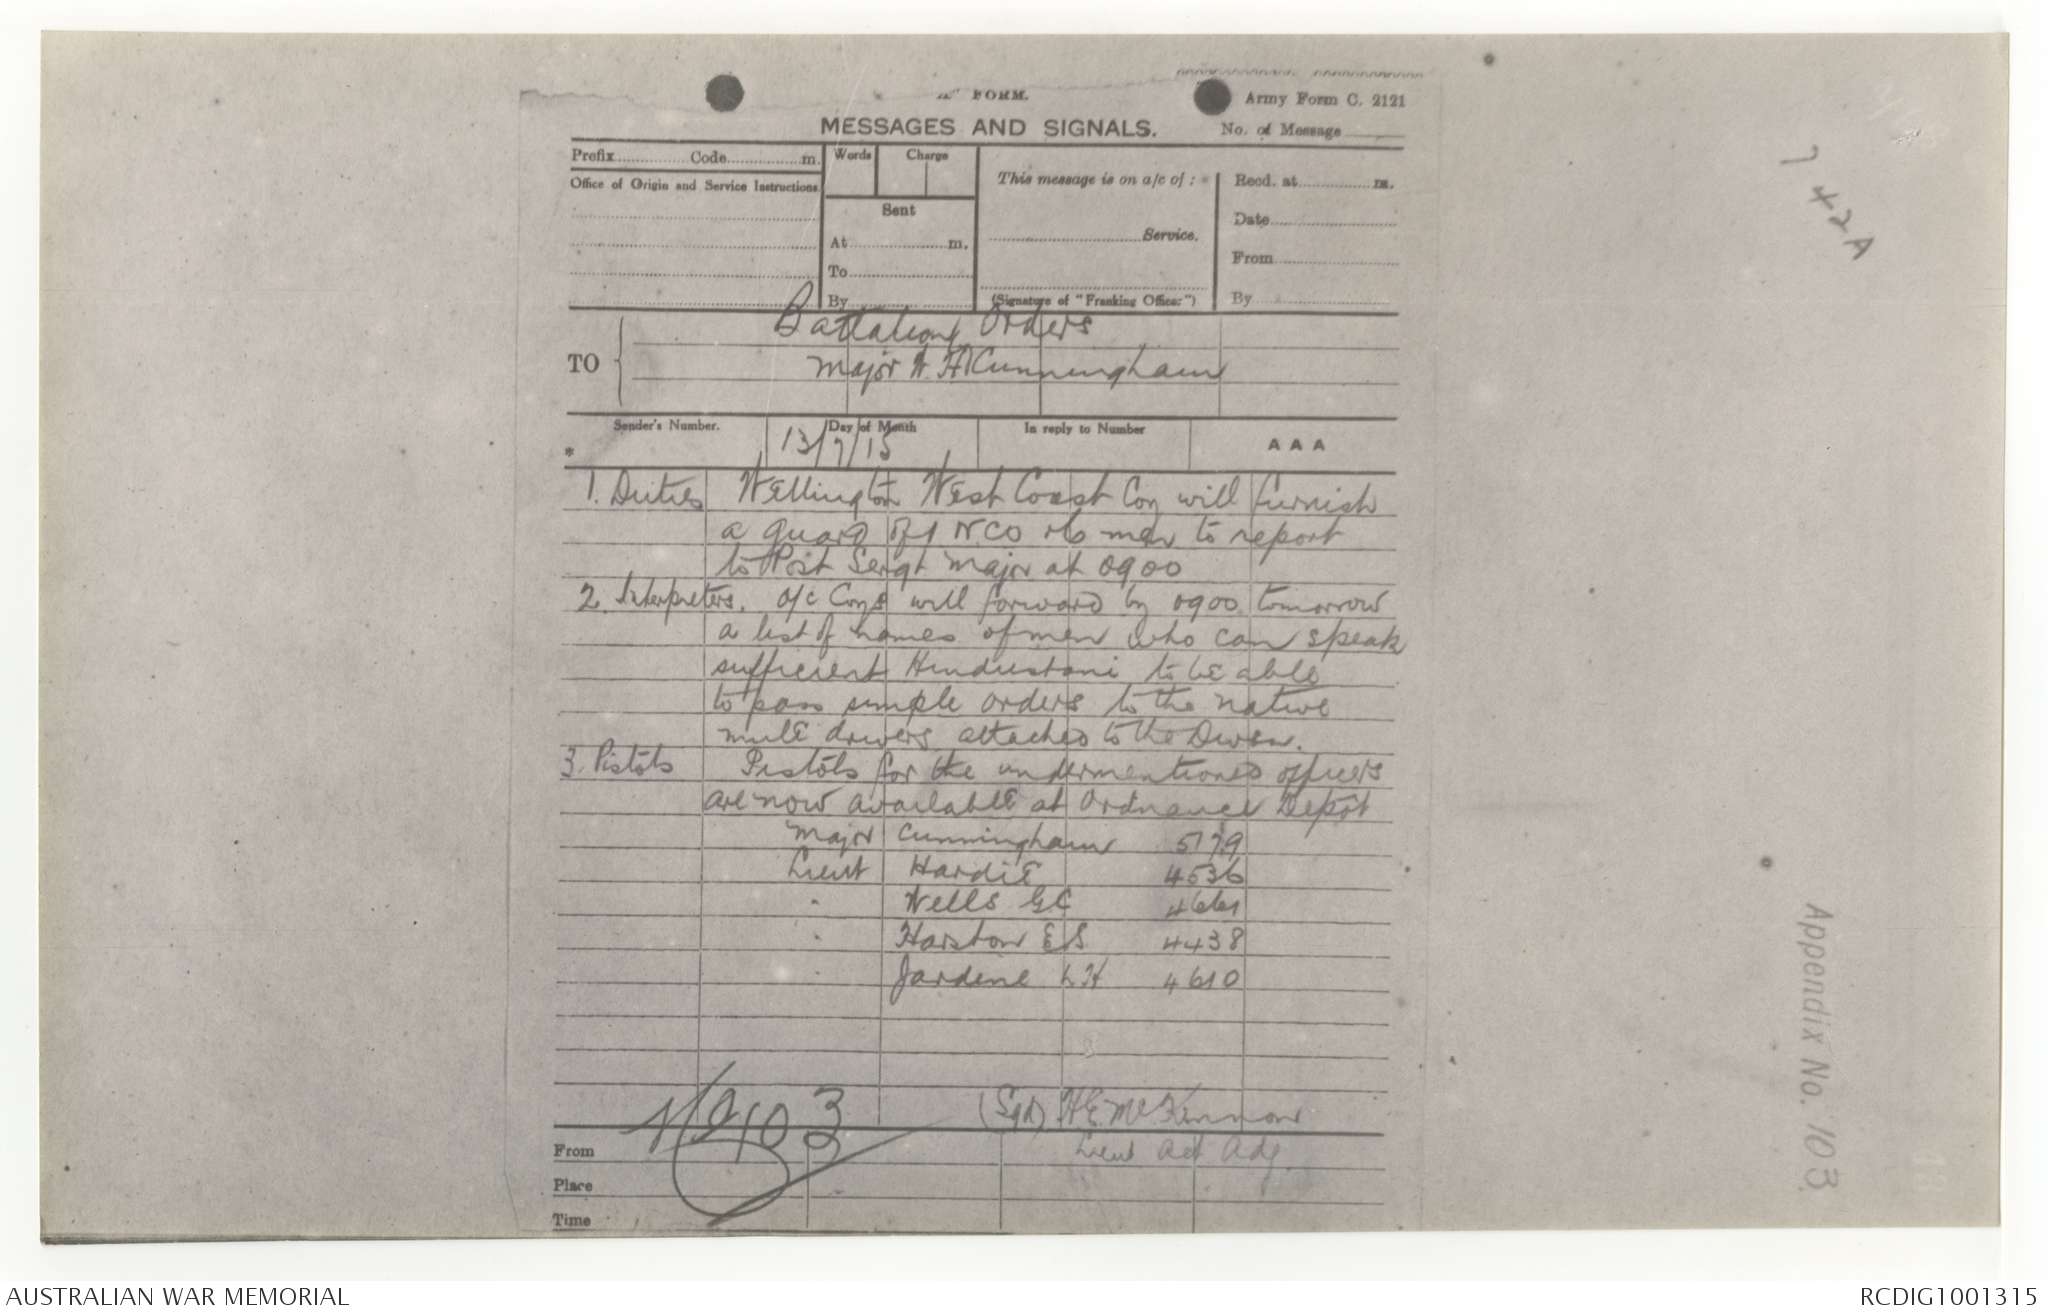 "A" FORM.
Army Form C. 2121
MESSAGES AND SIGNALS.
No. of Message
Prefix Code m.
Words Charge
This message is on a/c of :
Recd. at m.
Office of Origin and Service Instructions.
Sent
Date
At m.
Service.
To
From
By
(Signature of "Franking Officer")
By
TO
Battalion Orders
Major W. H. Cunningham
Sender's Number.
Day of Month
In reply to Number
AAA
*
13/7/15
1. Duties Wellington West Coast Coy will furnish
a guard of 1 NCO & 6 men to report
to Post Sergt Major at 0900
2. Interpreters. O/C Coys will forward by 0900 tomorrow
a list of names of men who can speak
sufficient Hindustani to be able
to pass simple orders to the native
mule drivers attached to the Divsn.
3. Pistols Pistols for the undermentioned officers
are now available at Ordnance Depôt
Major Cunningham 5179
Lieut Hardie 4536
" Wells G C 4661
" Harston E S 4438
" Jardine L H 4610
(Sgd) H E McKinnon
Lieut Act Adj.
No 103
From
Place
Time
7 42A
Appendix No. 103
AUSTRALIAN WAR MEMORIAL
RCDIG1001315